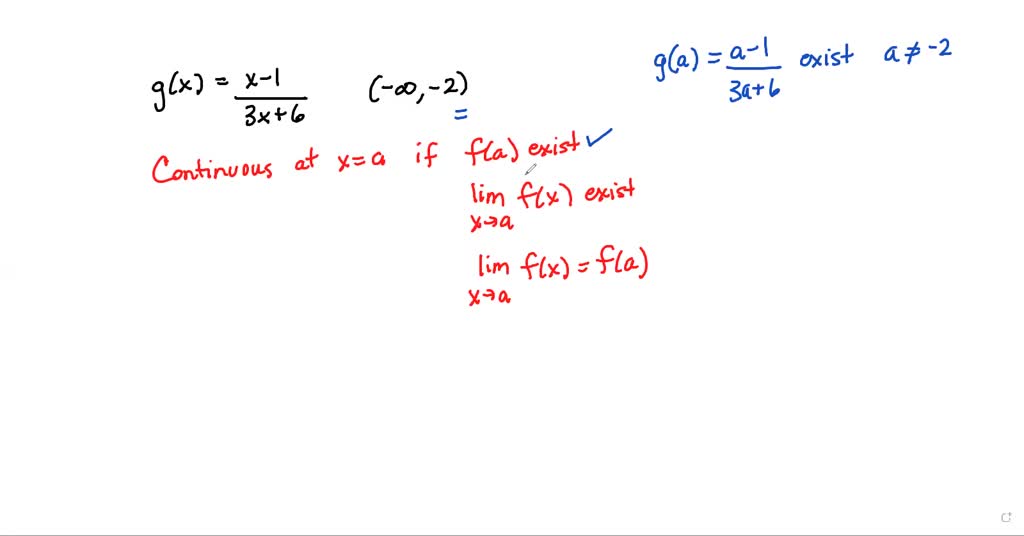 g(x) = x-1 / 3x+6 (-∞, -2)
g(a) = a-1 / 3a+6 exist a ≠ -2
Continuous at x=a if f(a) exist ✓
lim x→a f(x) exist
lim x→a f(x) = f(a)